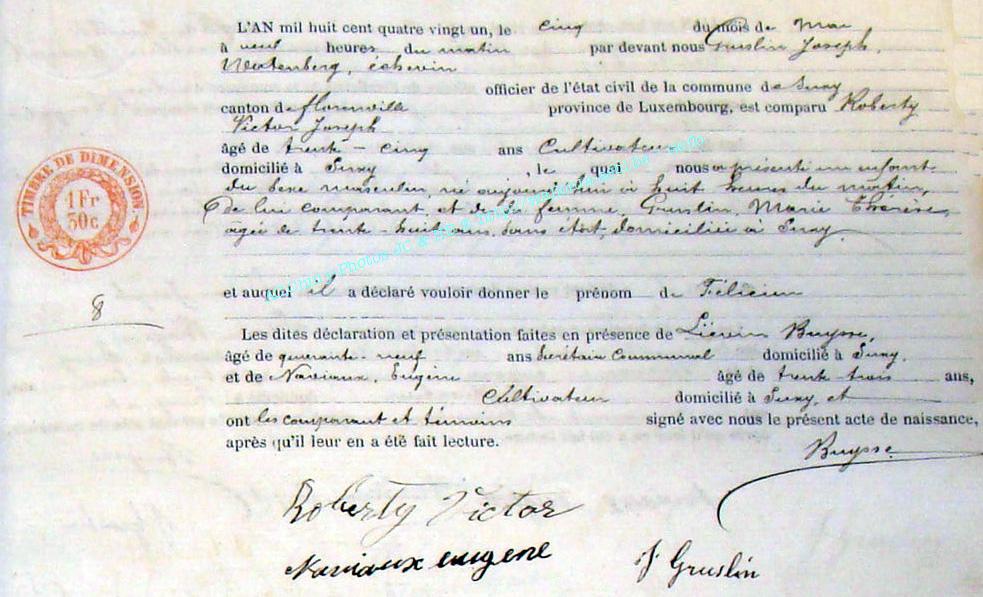 L'AN mil huit cent quatre vingt un, le cinq du mois de Mai
à neuf heures du matin par devant nous Gruslin Joseph,
échevin
officier de l'état civil de la commune de Suxy
canton de Florenville province de Luxembourg, est comparu Roberty
Victor Joseph
âgé de trente-cinq ans Cultivateur
domicilié à Suxy, le quai nous a présenté un enfant
du sexe masculin, né aujourd'hui à huit heures du matin,
de lui comparant, et de sa femme, Gruslin, Marie Thérèse,
agée de trente-huit ans, sans état, domiciliée à Suxy.
TIMBRE DE DIMENSION
1 Fr
50c.
8
et auquel il a déclaré vouloir donner le prénom de Félicien
Les dites déclaration et présentation faites en présence de Liévin Buysse,
âgé de quarante-neuf ans Secrétaire Communal domicilié à Suxy,
et de Naviaux, Eugène âgé de trente-trois ans,
Cultivateur domicilié à Suxy, et
ont les comparant et témoins signé avec nous le présent acte de naissance,
après qu'il leur en a été fait lecture.
Buysse
Roberty Victor
Naviaux eugene
J Gruslin